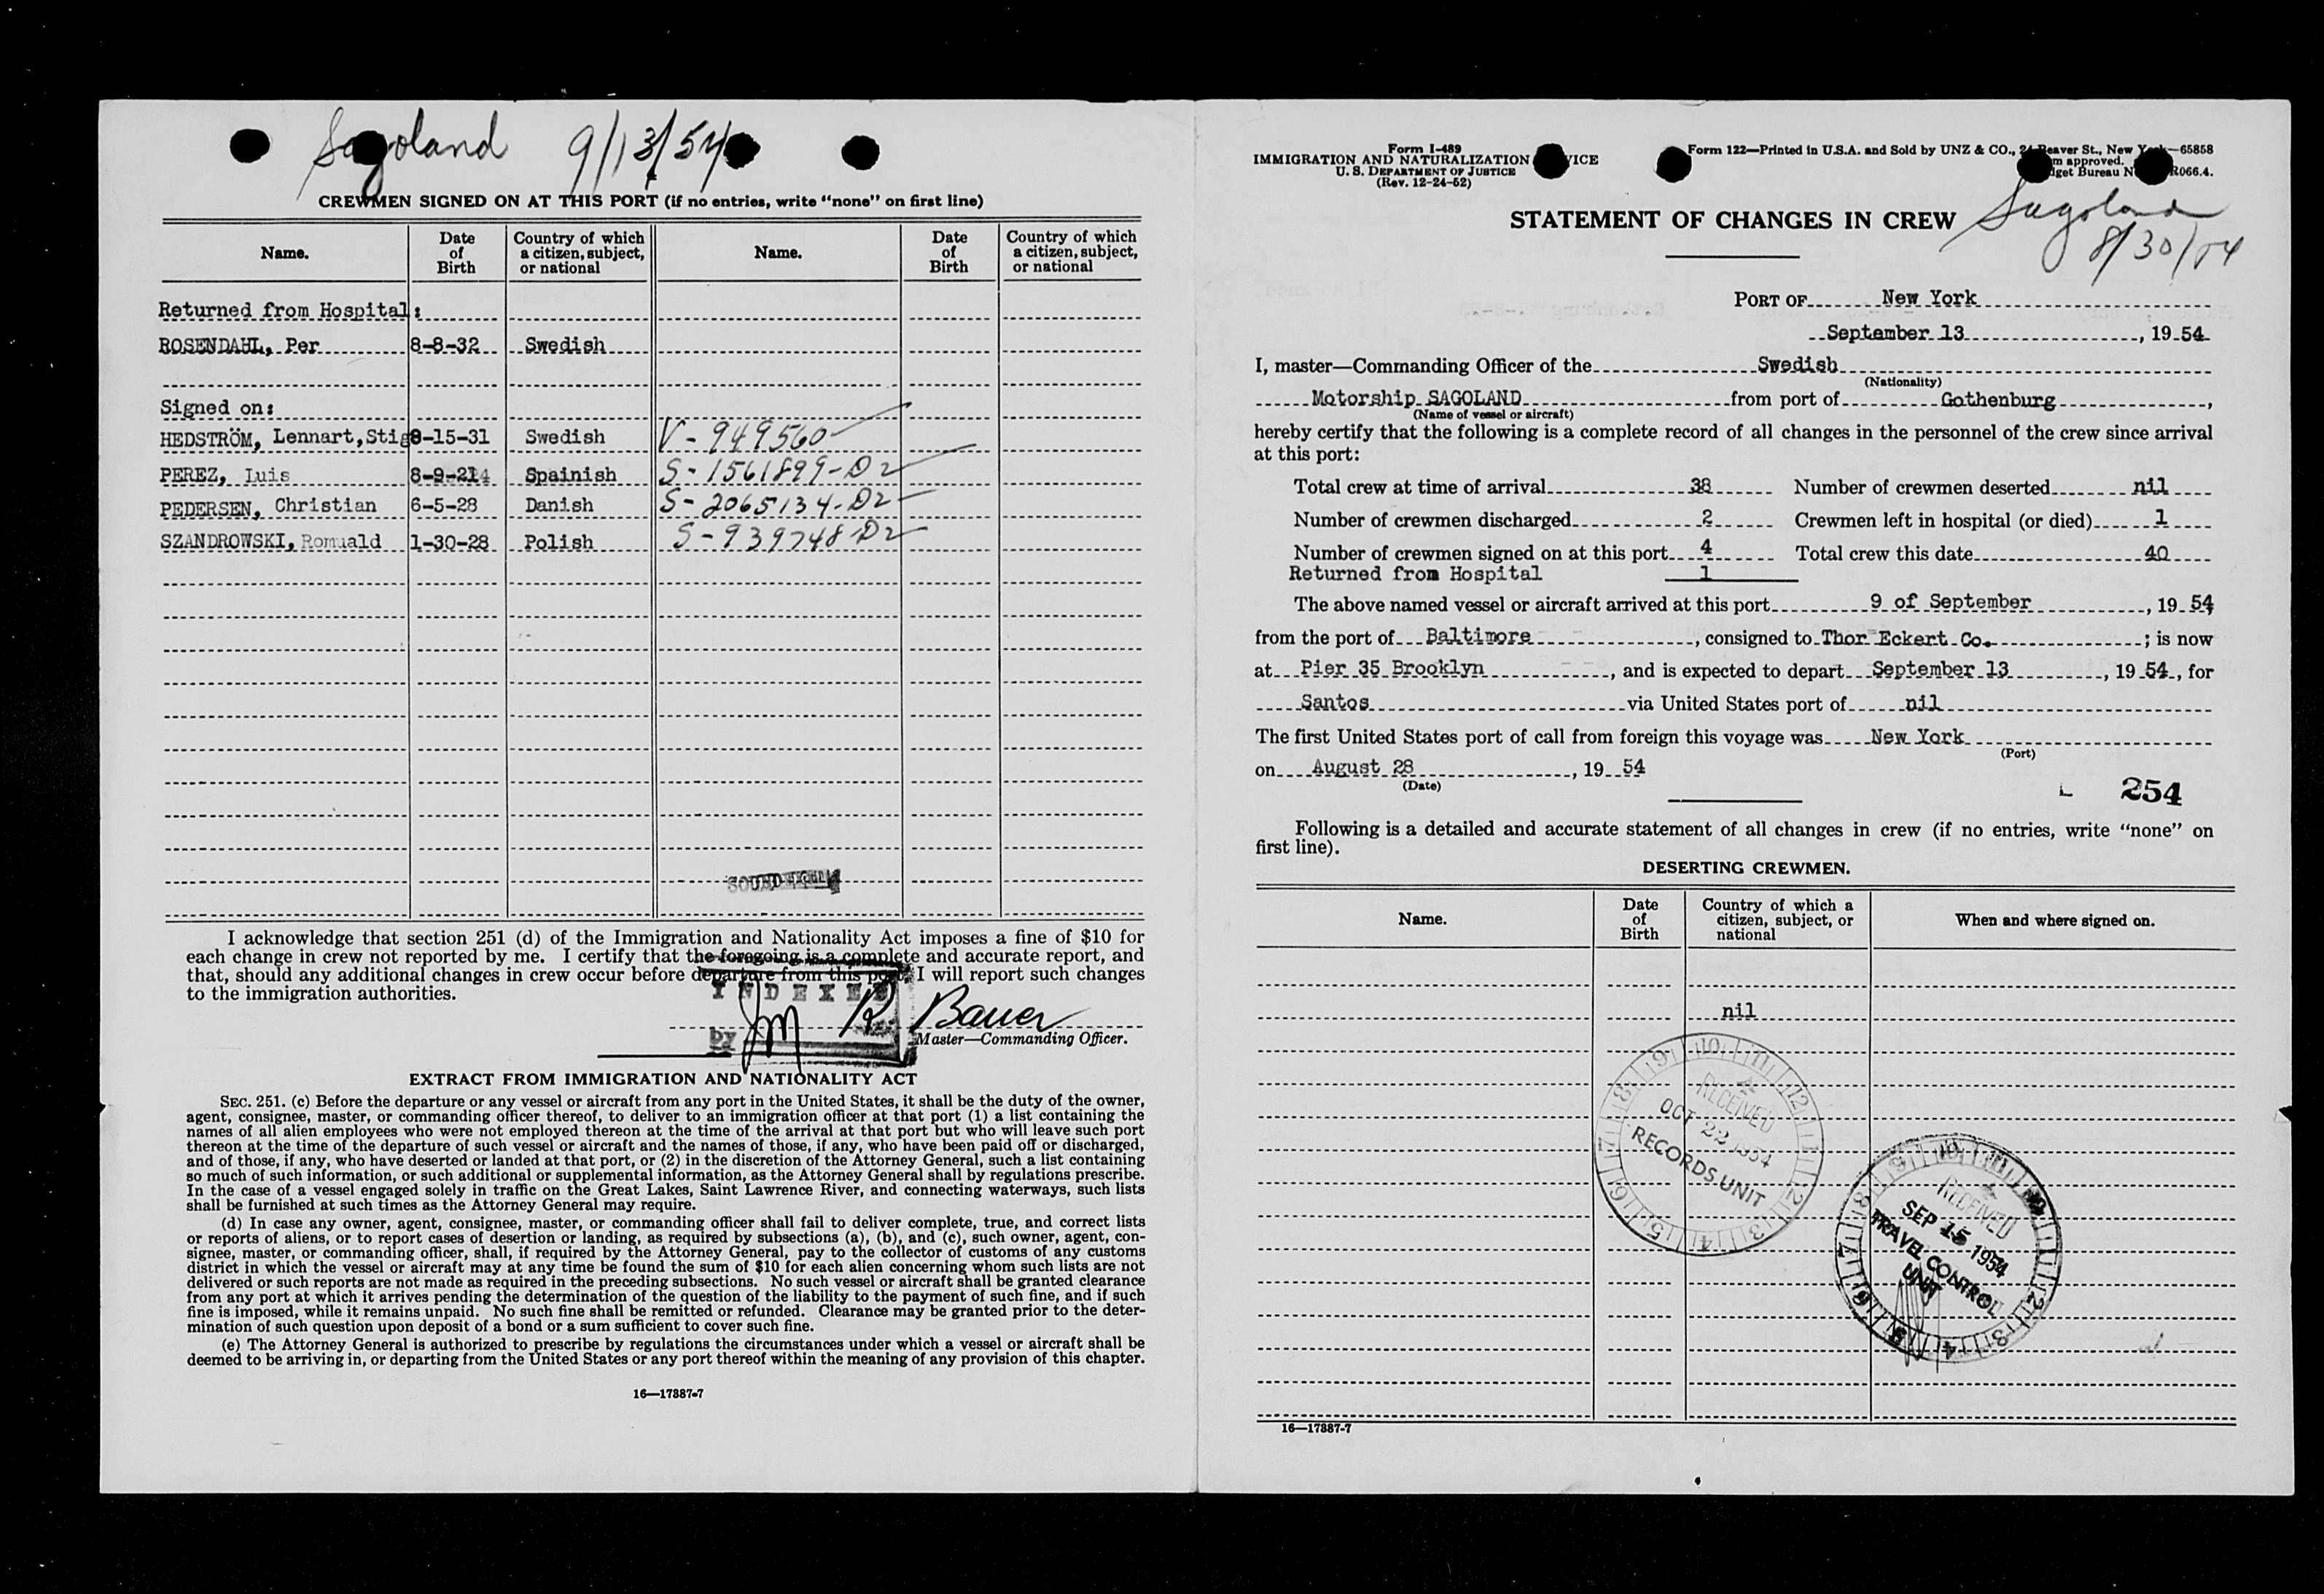 Sagoland 9/13/54
CREWMEN SIGNED ON AT THIS PORT (if no entries, write "none" on first line)
Name. Date of Birth Country of which a citizen, subject, or national Name. Date of Birth Country of which a citizen, subject, or national
Returned from Hospital:
ROSENDAHL, Per 8-8-32 Swedish
Signed on:
HEDSTRÖM, Lennart, Stig 8-15-31 Swedish V-949560
PEREZ, Luis Spainish S-1561899-D2
PEDERSEN, Christian 6-5-28 Danish S-2065134-D2
SZANDROWSKI, Romuald 1-30-28 Polish S-939748-D2
I acknowledge that section 251 (d) of the Immigration and Nationality Act imposes a fine of $10 for
each change in crew not reported by me. I certify that the foregoing is a complete and accurate report, and
that, should any additional changes in crew occur before departure from this port, I will report such changes
to the immigration authorities.
INDEXED
by Jm
R Bauer
Master—Commanding Officer.
EXTRACT FROM IMMIGRATION AND NATIONALITY ACT
SEC. 251. (c) Before the departure or any vessel or aircraft from any port in the United States, it shall be the duty of the owner,
agent, consignee, master, or commanding officer thereof, to deliver to an immigration officer at that port (1) a list containing the
names of all alien employees who were not employed thereon at the time of the arrival at that port but who will leave such port
thereon at the time of the departure of such vessel or aircraft and the names of those, if any, who have been paid off or discharged,
and of those, if any, who have deserted or landed at that port, or (2) in the discretion of the Attorney General, such a list containing
so much of such information, or such additional or supplemental information, as the Attorney General shall by regulations prescribe.
In the case of a vessel engaged solely in traffic on the Great Lakes, Saint Lawrence River, and connecting waterways, such lists
shall be furnished at such times as the Attorney General may require.
(d) In case any owner, agent, consignee, master, or commanding officer shall fail to deliver complete, true, and correct lists
or reports of aliens, or to report cases of desertion or landing, as required by subsections (a), (b), and (c), such owner, agent, con-
signee, master, or commanding officer, shall, if required by the Attorney General, pay to the collector of customs of any customs
district in which the vessel or aircraft may at any time be found the sum of $10 for each alien concerning whom such lists are not
delivered or such reports are not made as required in the preceding subsections. No such vessel or aircraft shall be granted clearance
from any port at which it arrives pending the determination of the question of the liability to the payment of such fine, and if such
fine is imposed, while it remains unpaid. No such fine shall be remitted or refunded. Clearance may be granted prior to the deter-
mination of such question upon deposit of a bond or a sum sufficient to cover such fine.
(e) The Attorney General is authorized to prescribe by regulations the circumstances under which a vessel or aircraft shall be
deemed to be arriving in, or departing from the United States or any port thereof within the meaning of any provision of this chapter.
16—17887-7
Form I-489
IMMIGRATION AND NATURALIZATION VICE
U. S. DEPARTMENT OF JUSTICE
(Rev. 12-24-52)
Form 122—Printed in U.S.A. and Sold by UNZ & CO., 24 Beaver St., New York—65858
m approved.
get Bureau N R066.4.
STATEMENT OF CHANGES IN CREW
Sagoland
8/30/54
PORT OF New York
September 13, 19 54
I, master—Commanding Officer of the Swedish
(Nationality)
Motorship SAGOLAND from port of Gothenburg,
(Name of vessel or aircraft)
hereby certify that the following is a complete record of all changes in the personnel of the crew since arrival
at this port:
Total crew at time of arrival 38 Number of crewmen deserted nil
Number of crewmen discharged 2 Crewmen left in hospital (or died) 1
Number of crewmen signed on at this port 4 Total crew this date 40
Returned from Hospital 1
The above named vessel or aircraft arrived at this port 9 of September, 19 54
from the port of Baltimore, consigned to Thor Eckert Co.; is now
at Pier 35 Brooklyn, and is expected to depart September 13, 19 54, for
Santos via United States port of nil
The first United States port of call from foreign this voyage was New York
(Port)
on August 28, 19 54
(Date)
254
Following is a detailed and accurate statement of all changes in crew (if no entries, write "none" on
first line).
DESERTING CREWMEN.
Name. Date of Birth Country of which a citizen, subject, or national When and where signed on.
nil
RECEIVED
OCT 22 1954
RECORDS UNIT
RECEIVED
SEP 15 1954
TRAVEL CONTROL
UNIT
16—17887-7